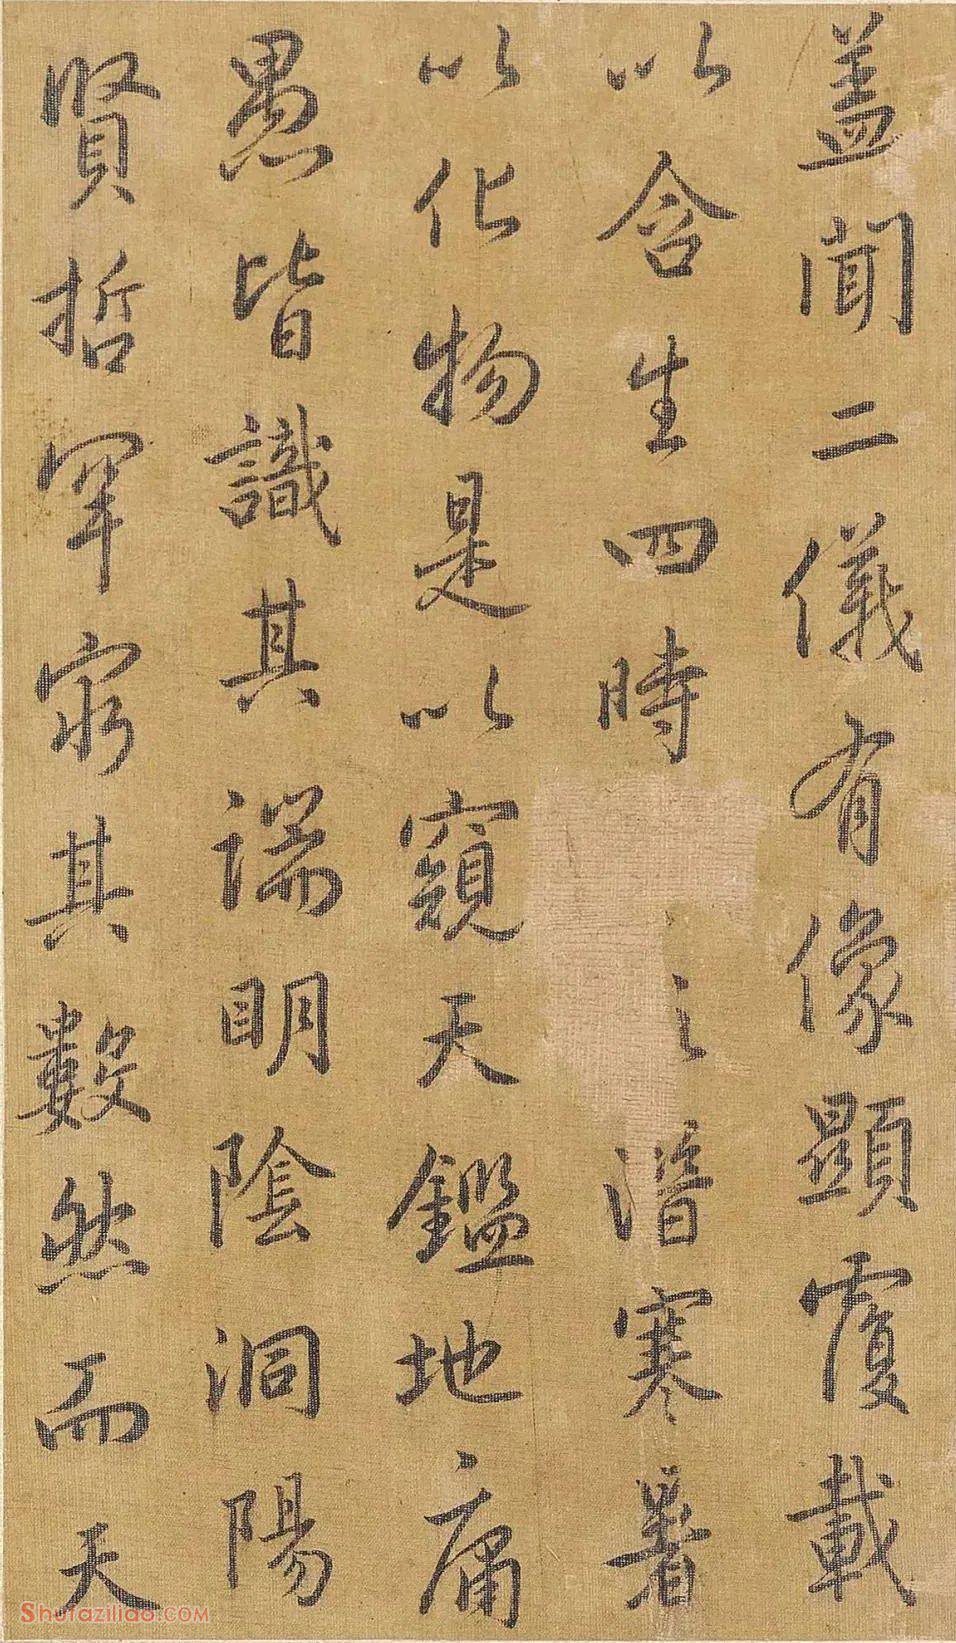 盖聞二儀有像顯覆載
以含生四時潜寒暑
以化物是以窺天鑑地庸
愚皆識其端明陰洞陽
賢哲罕窮其數然而天
Shufaziliao.COM